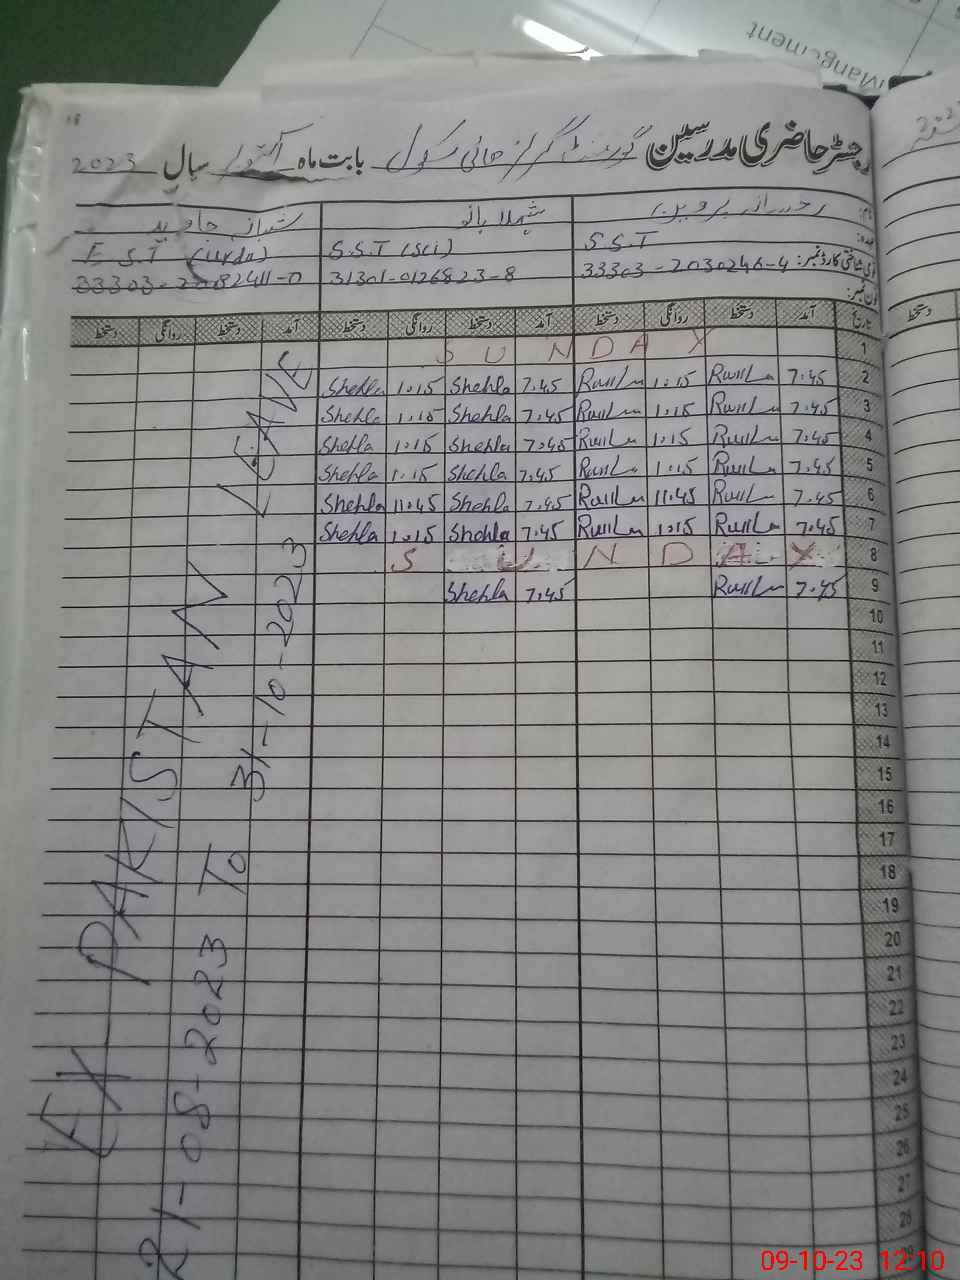 Mangement
18
رجسٹر حاضری مدرسین گورنمنٹ گرلز ھائی سکول بابت ماہ اکتوبر سال 2023
رخسانہ پروین شہلا بانو شبانہ جاوید
عہدہ: S.S.T S.S.T (sci) E.S.T (urdu)
قومی شناختی کارڈ نمبر: 33303-2030246-4 31301-0126823-8 33303-2082411-0
فون نمبر:
تاریخ آمد دستخط روانگی دستخط آمد دستخط روانگی دستخط آمد دستخط روانگی دستخط
دستخط
SUNDAY 1
Shehla 1.15 Shehla 7.45 1.15 7.45 2
Shehla 1.15 Shehla 7.45 1.15 7.45 3
Shehla 1.15 Shehla 7.45 1.15 7.45 4
Shehla 1.15 Shehla 7.45 1.15 7.45 5
Shehla 11.45 Shehla 7.45 11.45 7.45 6
Shehla 1.15 Shehla 7.45 1.15 7.45 7
SUNDAY 8
Shehla 7.45 7.45 9
10
11
12
13
14
15
16
17
18
19
20
21
22
23
24
25
26
27
28
EX PAKISTAN LEAVE
21-08-2023 To 31-10-2023
09-10-23 12:10